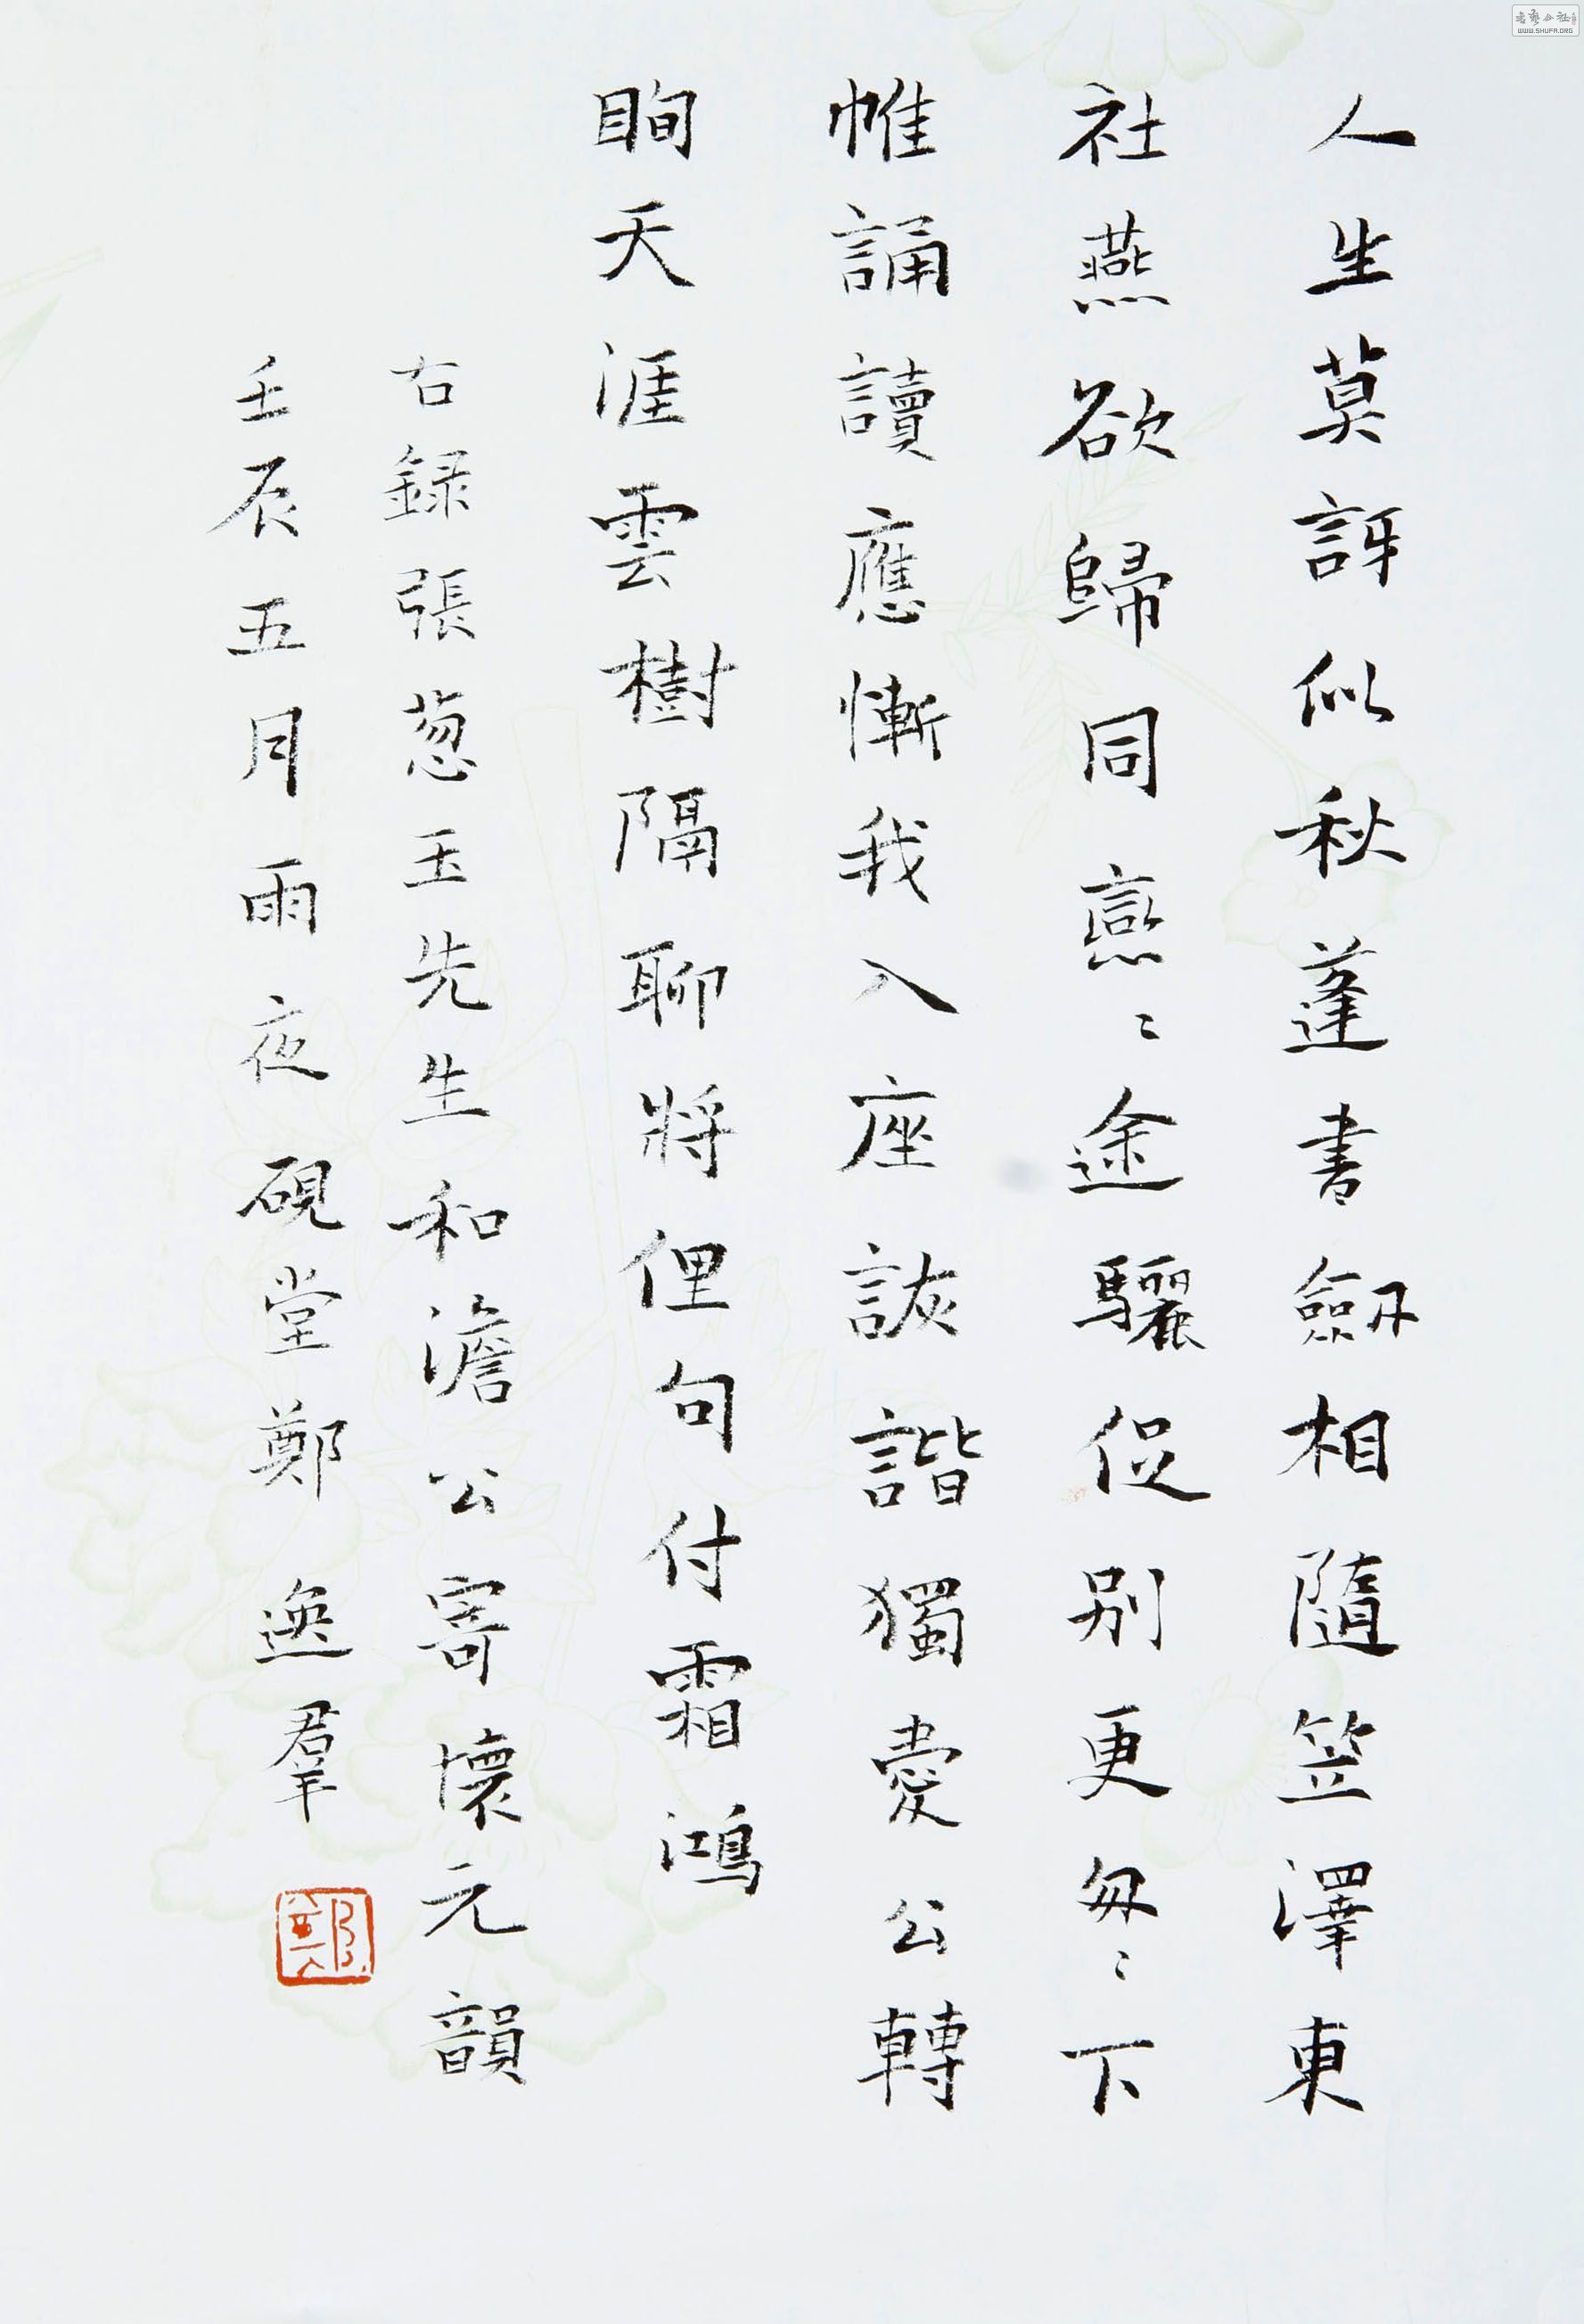 人生莫訝似秋蓬書劍相隨笠澤東
社燕欲歸同燕〻途驪促別更匆〻下
帷誦讀應慚我入座詼諧獨愛公轉
眴天涯雲樹隔聊將俚句付霜鴻
右録張葱玉先生和澹公寄懷元韻
壬辰五月雨夜硯堂鄭逸羣
鄭
WWW.SHUFA.ORG